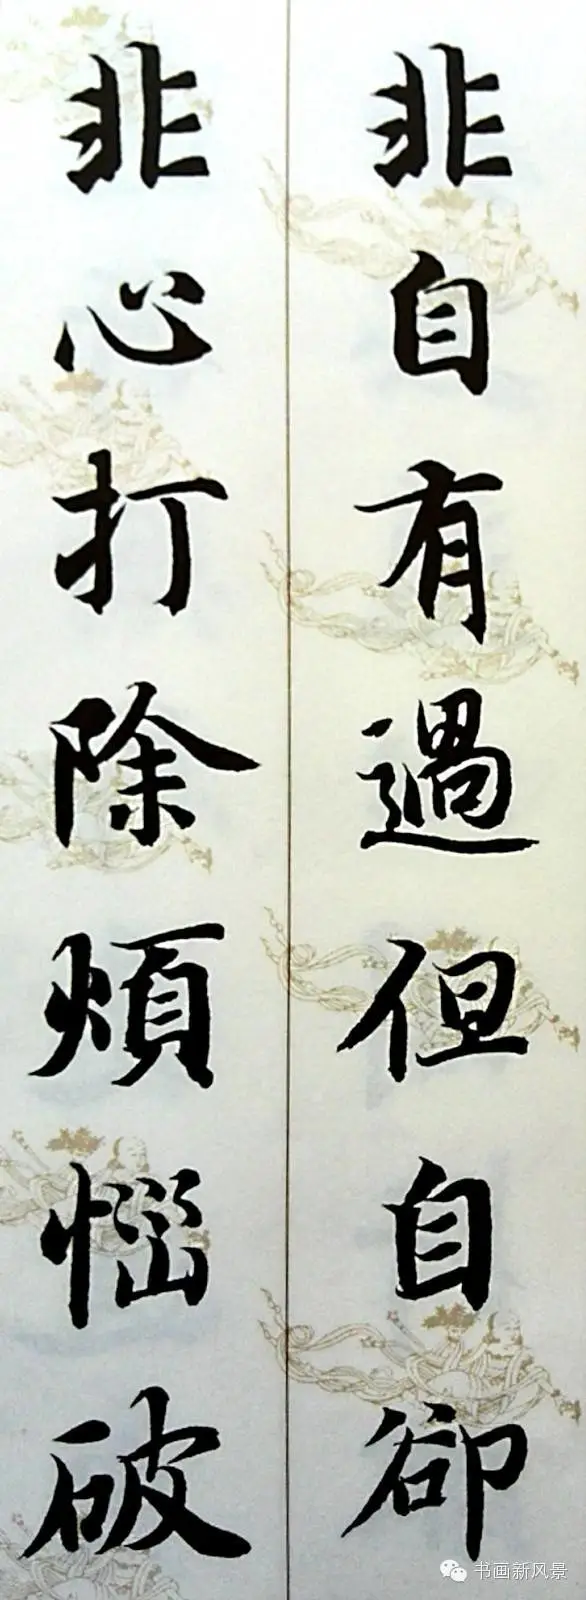 非自有過但自卻
非心打除煩惱破
书画新风景